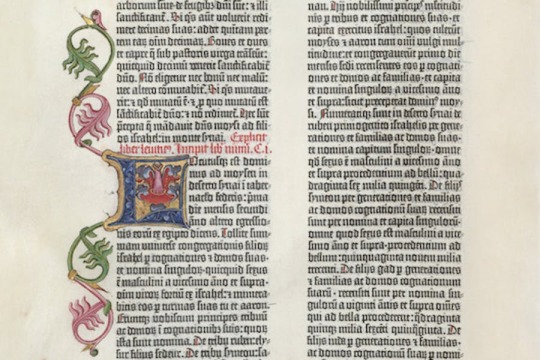 arborum sive de frugibus dñi sūt: et illi
sanctificant̄. Si q̄s aut̄ voluerit redi-
mere decimas suas: addet quintam par-
tem eaȝ. Oīm decimaȝ. boves et oves
et capre q̄ sub pastoris virga trāseūt:
quicquid decimū venerit sanctificabit̄
dño. Nō eligetur nec bonū nec malū:
nec altero cōmutabit̄. Si q̄s mutave-
rit: et qd mutatū ē et p quo mutatū est
sanctificabit̄ dño: et nō redimet̄. Hec sūt
p̄cepta q̄ mādavit dñs moysi ad filios
israhel: in monte synai. Explicit
liber levitic⁹. Incipit lib̄ numi. C. i.
Locutusq; est domi-
nus ad moysen in
deserto synai ī taber-
naclo federis: p̄ma
die mensis secundi
āno altero egressio-
nis eoȝ ex egypto dicens. Tollite sum-
mam universe congregationis filioȝ
israhel p cognationes et domos suas-
et nomina singuloȝ: quicquid sexus
ē masculini a vicesimo āno et supra-
oīm viroȝ fortiū ex israhel: et numera-
bitis eos p turmas suas tu et aaron.
Eruntq; vobiscum principes tribuū
ac domoȝ ī cognationib⁹ suis: quoȝ
ista sunt nomina. De ruben: elisur
filius sedeur. De symeon: sa-
Hij nobilissimi principes multitudi-
nis p tribus et cognationes suas- et
capita exercitus israhel: quos tulerūt
moyses et aaron cum omī vulgi mul-
titudine: et cōgregaverunt primo die
mensis secūdi recensentes eos p cogna-
tiones et domos ac familias- et capita
et nomina singuloȝ a vicesimo āno
et supra: sicut preceperat domin⁹ moy-
si. Numeratiq; sunt in deserto synai de
ruben primogenito israhelis p gene-
rationes et familias ac domos suas
et nomina capitum singuloȝ- omne
qd sexus ē masculini a vicesimo āno
et supra procedentium ad bellū: qua-
draginta sex milia quingēti. De filijs
symeon per generationes et familias
ac domos cognationū suaȝ recensiti
sunt per nomina et capita singuloȝ-
omne quod sexus est masculini a vicesimo
āno et supra procedentium ad
bellū: quinquaginta novem milia
trecenti. De filijs gad p generationes
et familias ac domos cognationum
suarū- recensiti sunt per nomina sin-
guloȝ a viginti ānis et supra omnes
qui ad bella procederent: q̄draginta
quinq; milia sexcēti quinq̄ginta. De
filijs iuda p generationes et familias